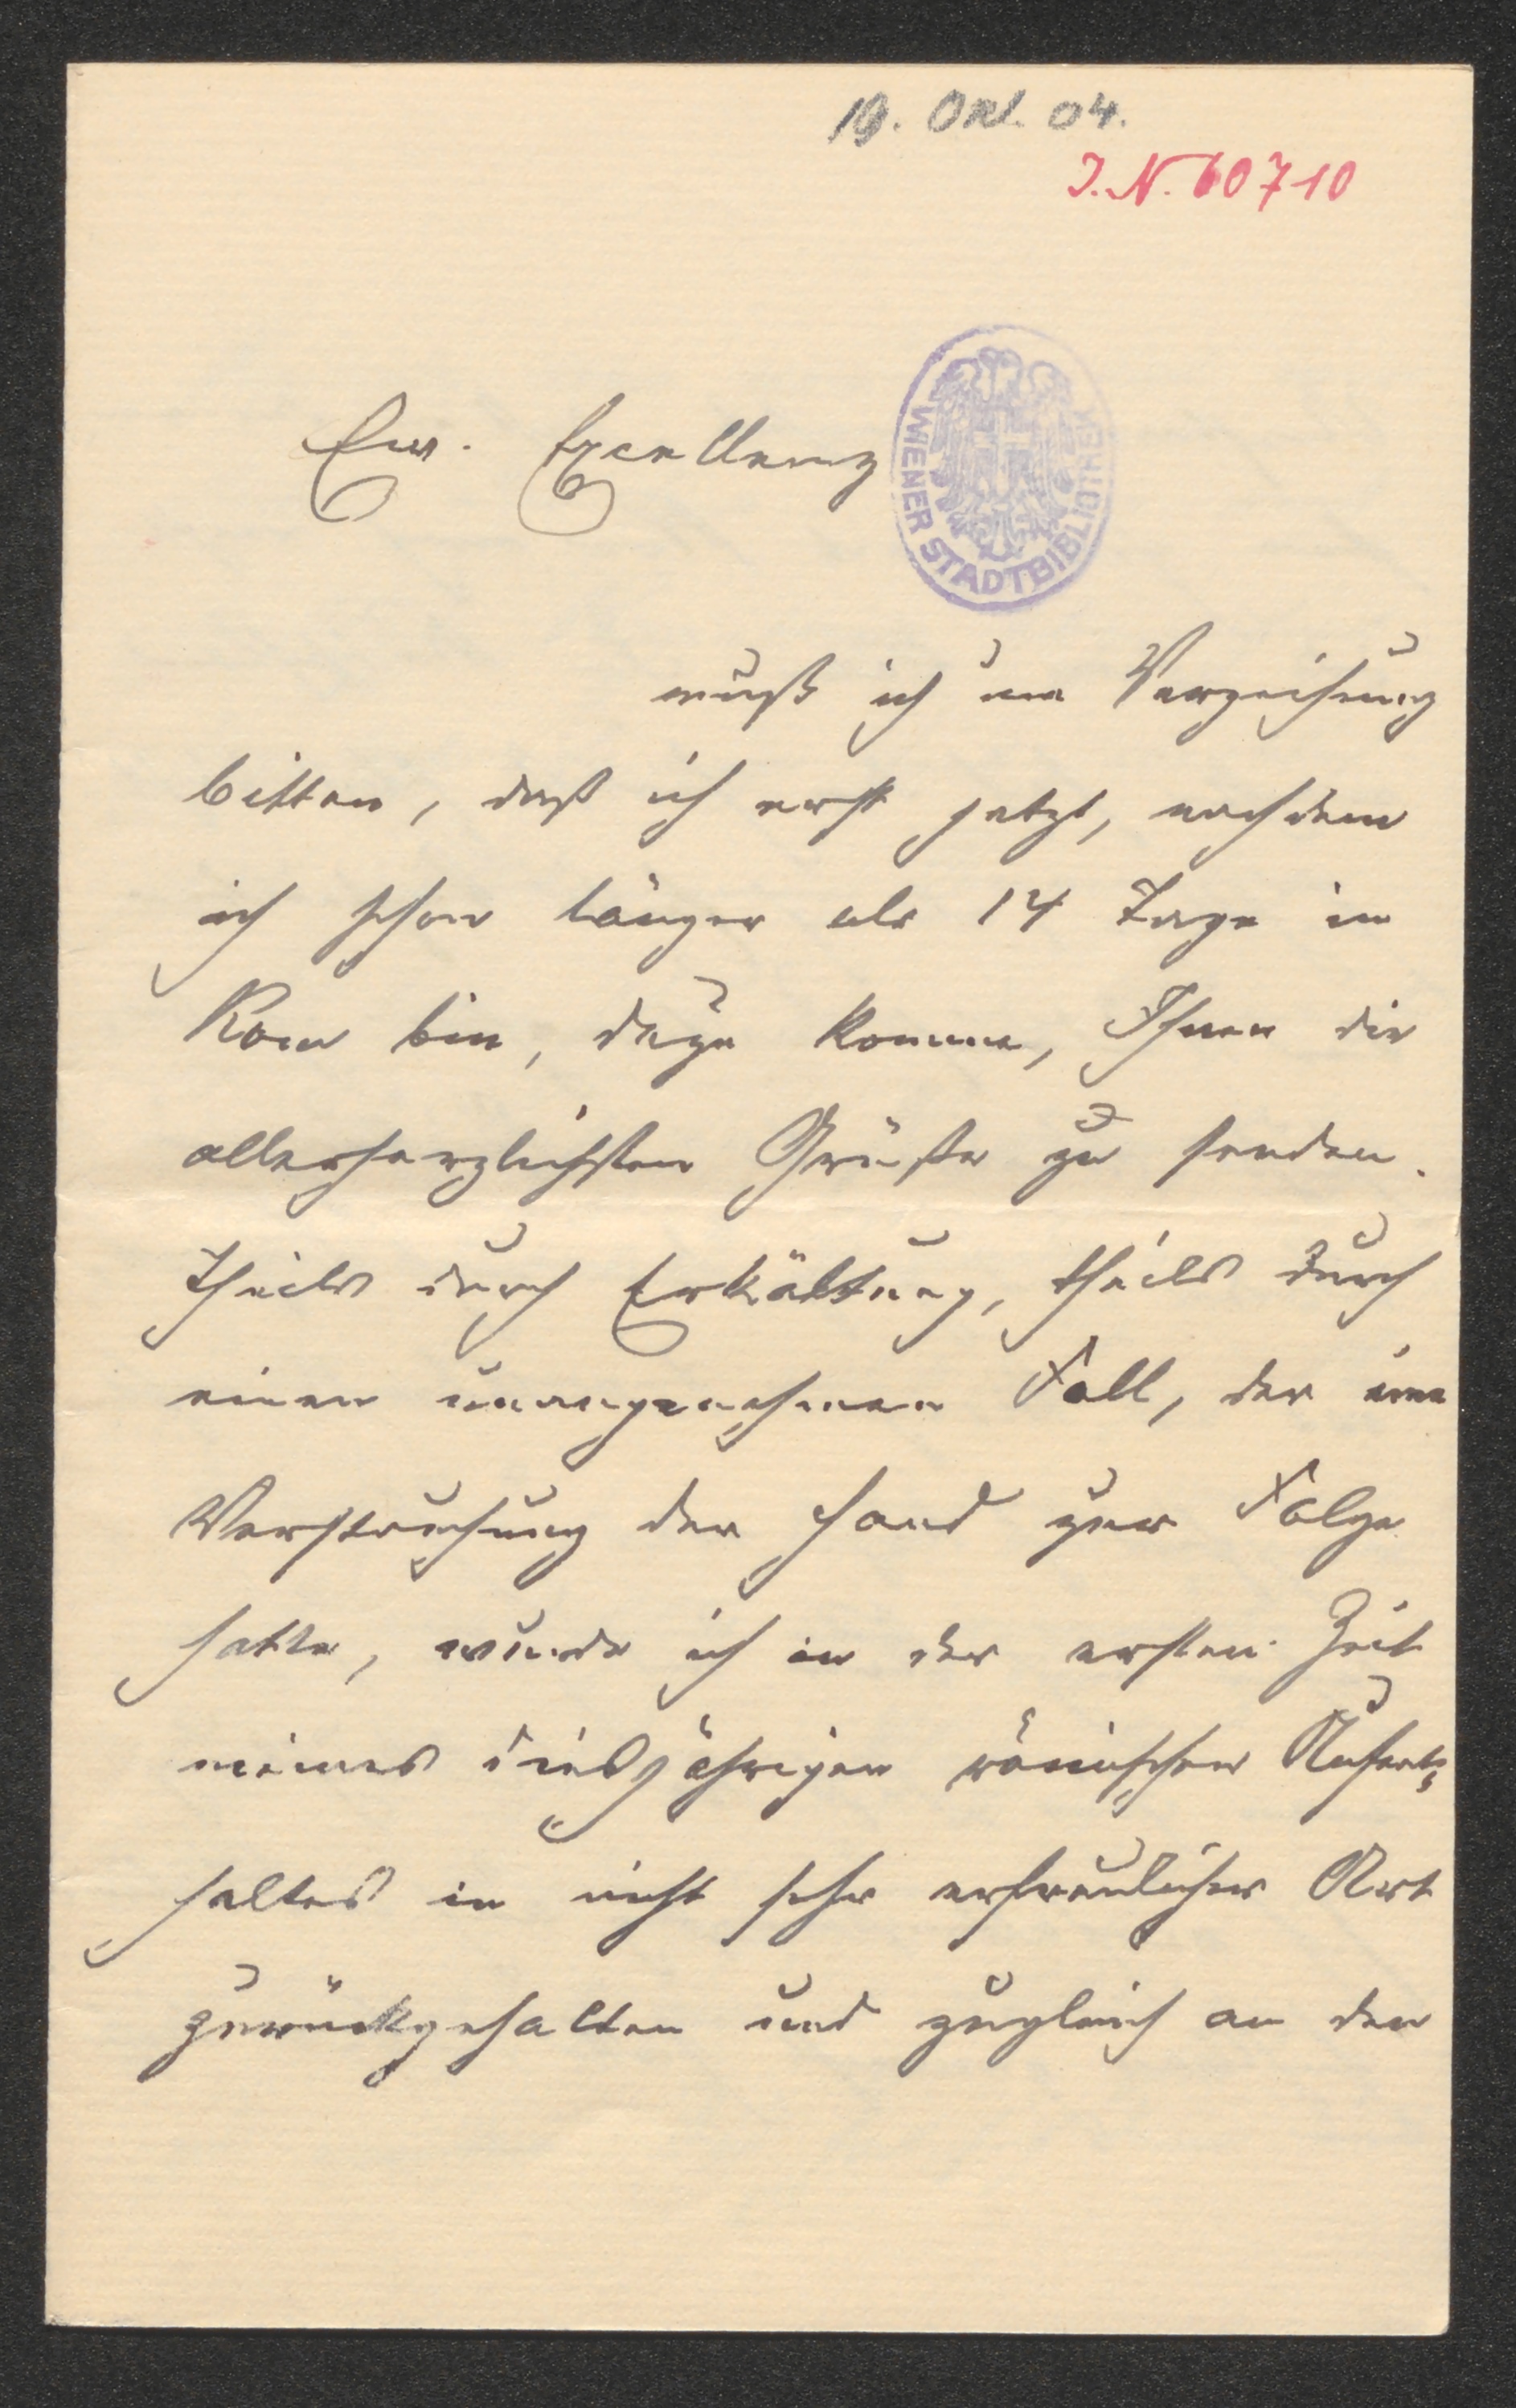 19. Okt. 04.
I. N. 60710
Ew. Excellenz
WIENER STADTBIBLIOTHEK
muß ich um Verzeihung
bitten, daß ich erst jetzt, nachdem
ich schon länger als 14 Tage in
Rom bin, dazu komme, Ihnen die
allerherzlichsten Grüße zu senden.
Theils durch Erkältung, theils durch
einen unangenehmen Fall, der eine
Verstauchung der Hand zur Folge
hatte, wurde ich in der ersten Zeit
meines diesjährigen römischen Aufent-
haltes in nicht sehr erfreulicher Art
zurückgehalten und zugleich an den